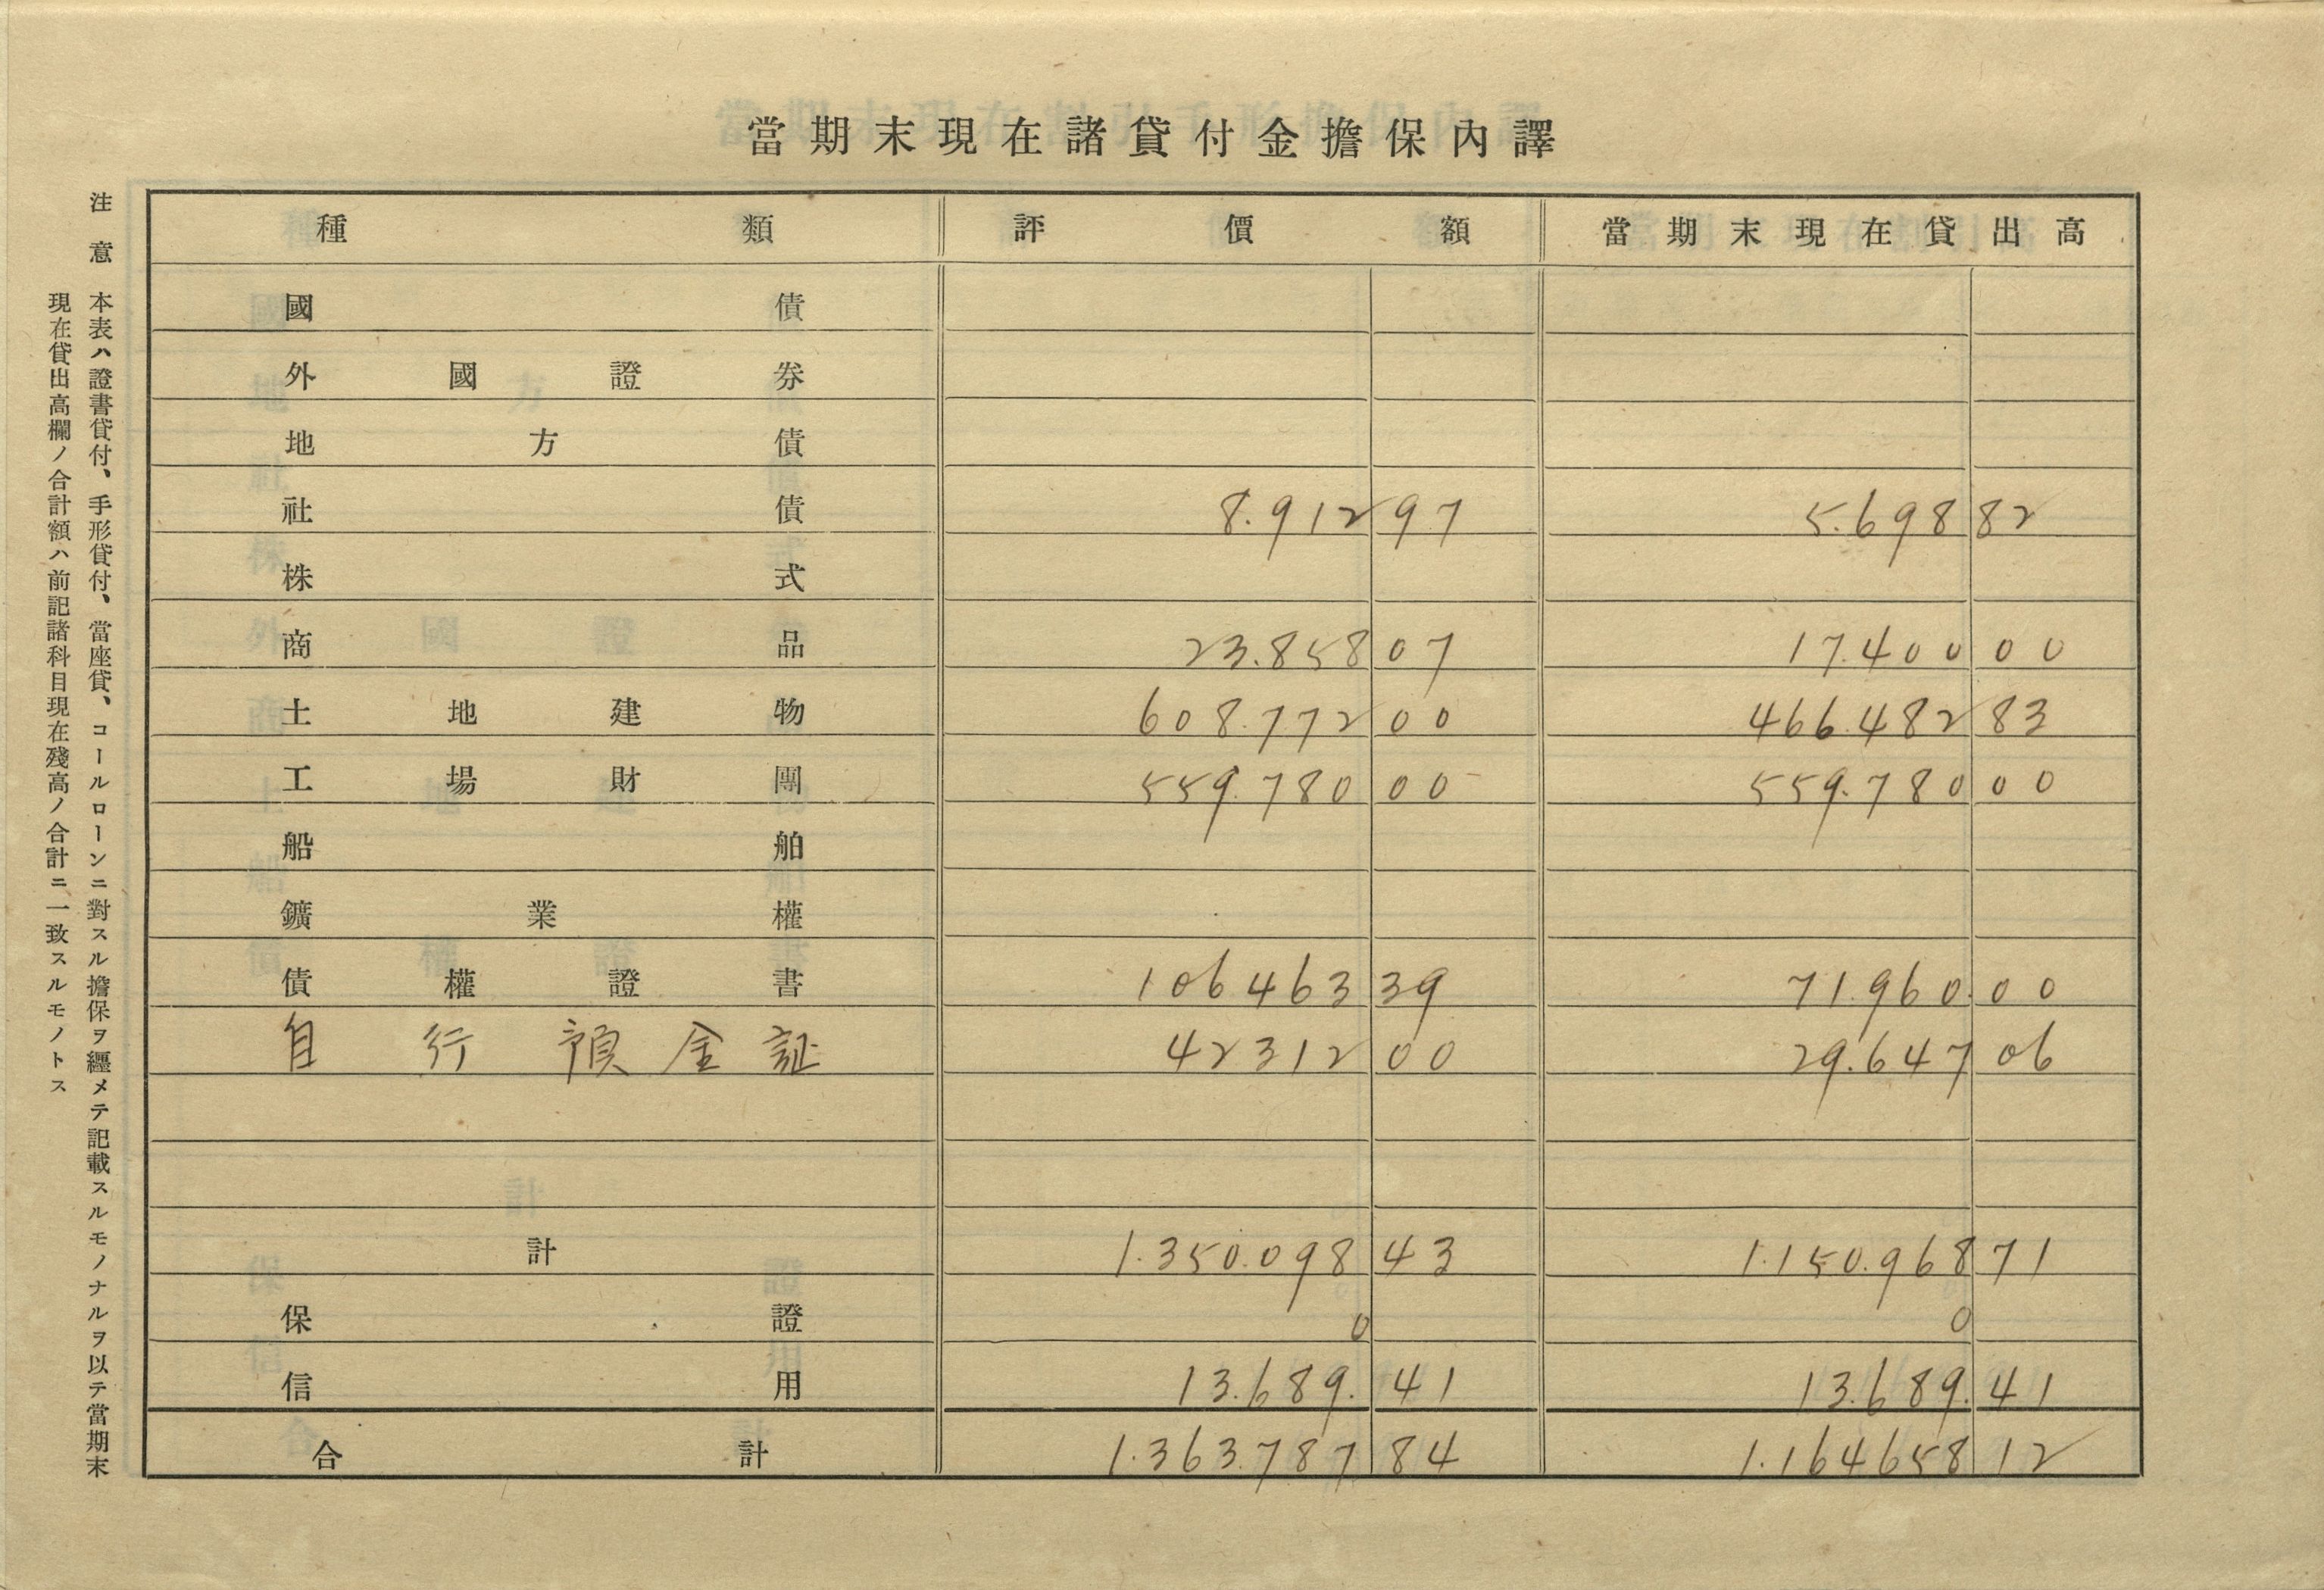 當期末現在諸貸付金擔保內譯
種類 評價額 當期末現在貸出高
國債
外國證券
地方債
社債 8.912 97 5.698 82
株式
商品 23.858 07 17.400 00
土地建物 608.772 00 466.482 83
工場財團 559.780 00 559.780 00
船舶
鑛業權
債權證書 106463 39 71.960 00
自行預金証 42312 00 29.647 06
計 1.350.098 43 1.150.968 71
保證 0 0
信用 13.689. 41 13.689. 41
合計 1.363.787 84 1.164658 12
注意 本表ハ證書貸付、手形貸付、當座貸、コールローンニ對スル擔保ヲ纒メテ記載スルモノナルヲ以テ當期末
現在貸出高欄ノ合計額ハ前記諸科目現在殘高ノ合計ニ一致スルモノトス